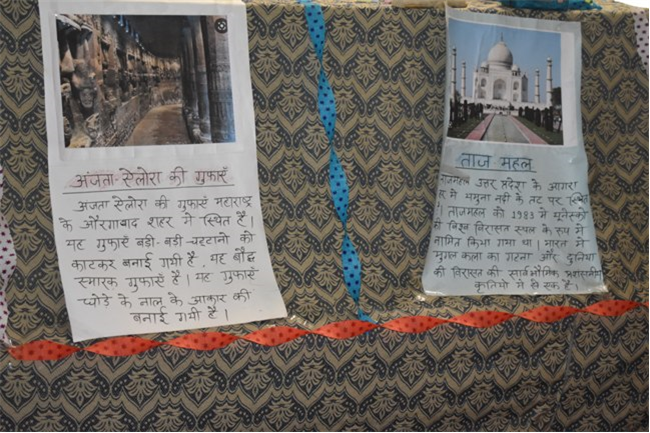 अजंता ऐलोरा की गुफाएँ
अजता ऐलोरा की गुफाएँ महाराष्ट्र
के औरगाबाद शहर मे स्थित है।
यह गुफाएँ बडी-बडी चट्टानो को
काटकर बनाई गयी है. यह बौद्ध
स्मारक गुफाएँ है। यह गुफाएँ
घोडे के नाल के आकार की
बनाई गयी है।
ताज महल
ताजमहल उत्तर प्रदेश के आगरा
मे यमुना नदी के तट पर स्थित
ताजमहल को 1983 मे यूनेस्को
विश्व विरासत स्थल के रूप मे
नामित किया गया था। भारत मे
मुगल कला का गहना और दुनिया
की विरासत की सार्वभौमिक
कृतियो मे से एक है।